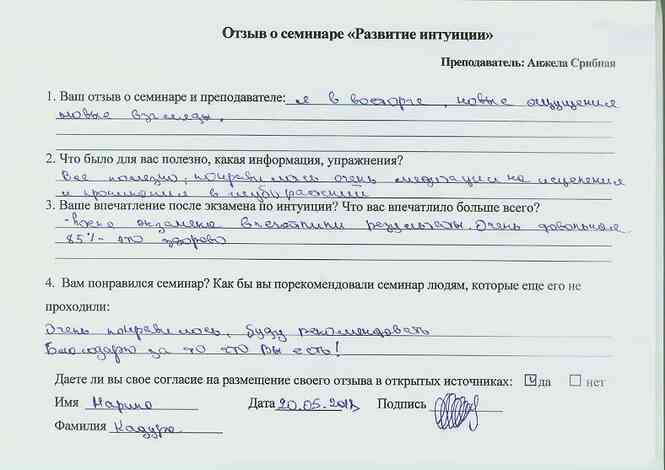 Отзыв о семинаре «Развитие интуиции»
Преподаватель: Анжела Срибная
1. Ваш отзыв о семинаре и преподавателе: я в восторге, новые ощущения
новые взгляды.
2. Что было для вас полезно, какая информация, упражнения?
Все полезно, понравилась очень медитации на исцеления
и
3. Ваше впечатление после экзамена по интуиции? Что вас впечатлило больше всего?
экзамена впечатлили результаты. Очень довольная
85% - это здорово
4. Вам понравился семинар? Как бы вы порекомендовали семинар людям, которые еще его не
проходили:
Очень понравилось, буду рекомендовать
Благодарю за то что Вы есть!
Даете ли вы свое согласие на размещение своего отзыва в открытых источниках: да нет
Имя Марина Дата 20.05.2012 Подпись
Фамилия